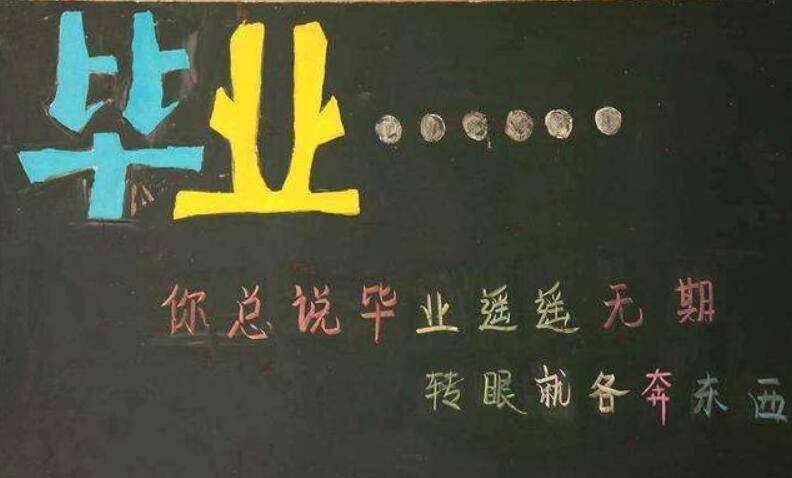 毕业……
你总说毕业遥遥无期
转眼就各奔东西